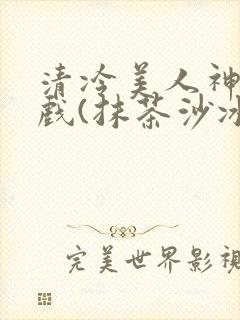 清冷美人神
戏(抹茶沙冰
完美世界影视